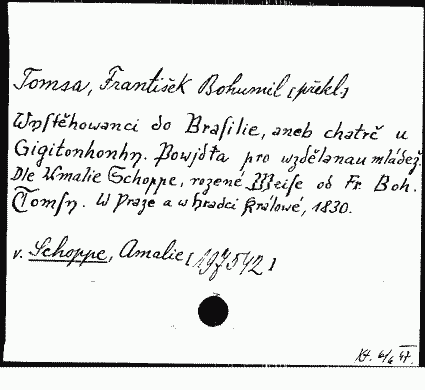 Tomsa, František Bohumil [překl.]
Wystěhowanci do Brasilie, aneb chatrč u
Gigitonhonhy. Powjdka pro wzdělanau mládež.
Dle Amalie Schoppe, rozené Weise od Fr. Boh.
Tomsy. W Praze a w hradci králowé, 1830.
v. Schoppe, Amalie [197542]